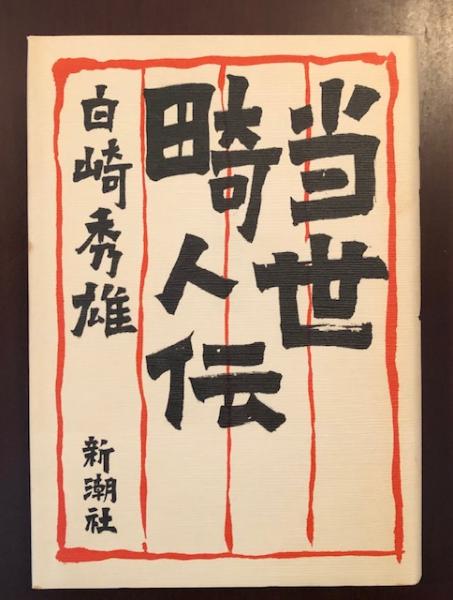 当世
畸人伝
白崎秀雄
新潮社